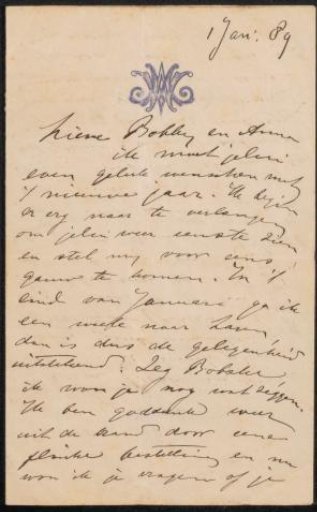 1 Jan: 89
Lieve Bobby en Anna
ik moet jelui
even geluk wenschen met
't nieuwe jaar. Ik begin
er erg naar te verlangen
om jelui weer eens te zien
en stel my voor eens
gauw te komen. In 't
eind van Januari ga ik
een week naar Laren
dan is dus de gelegenheid
uitstekend. Zeg Bobske
ik won je nog wat zeggen.
Ik ben goddank weer
uit de brand door eene
flinke bestelling en nu
won ik je vragen of je